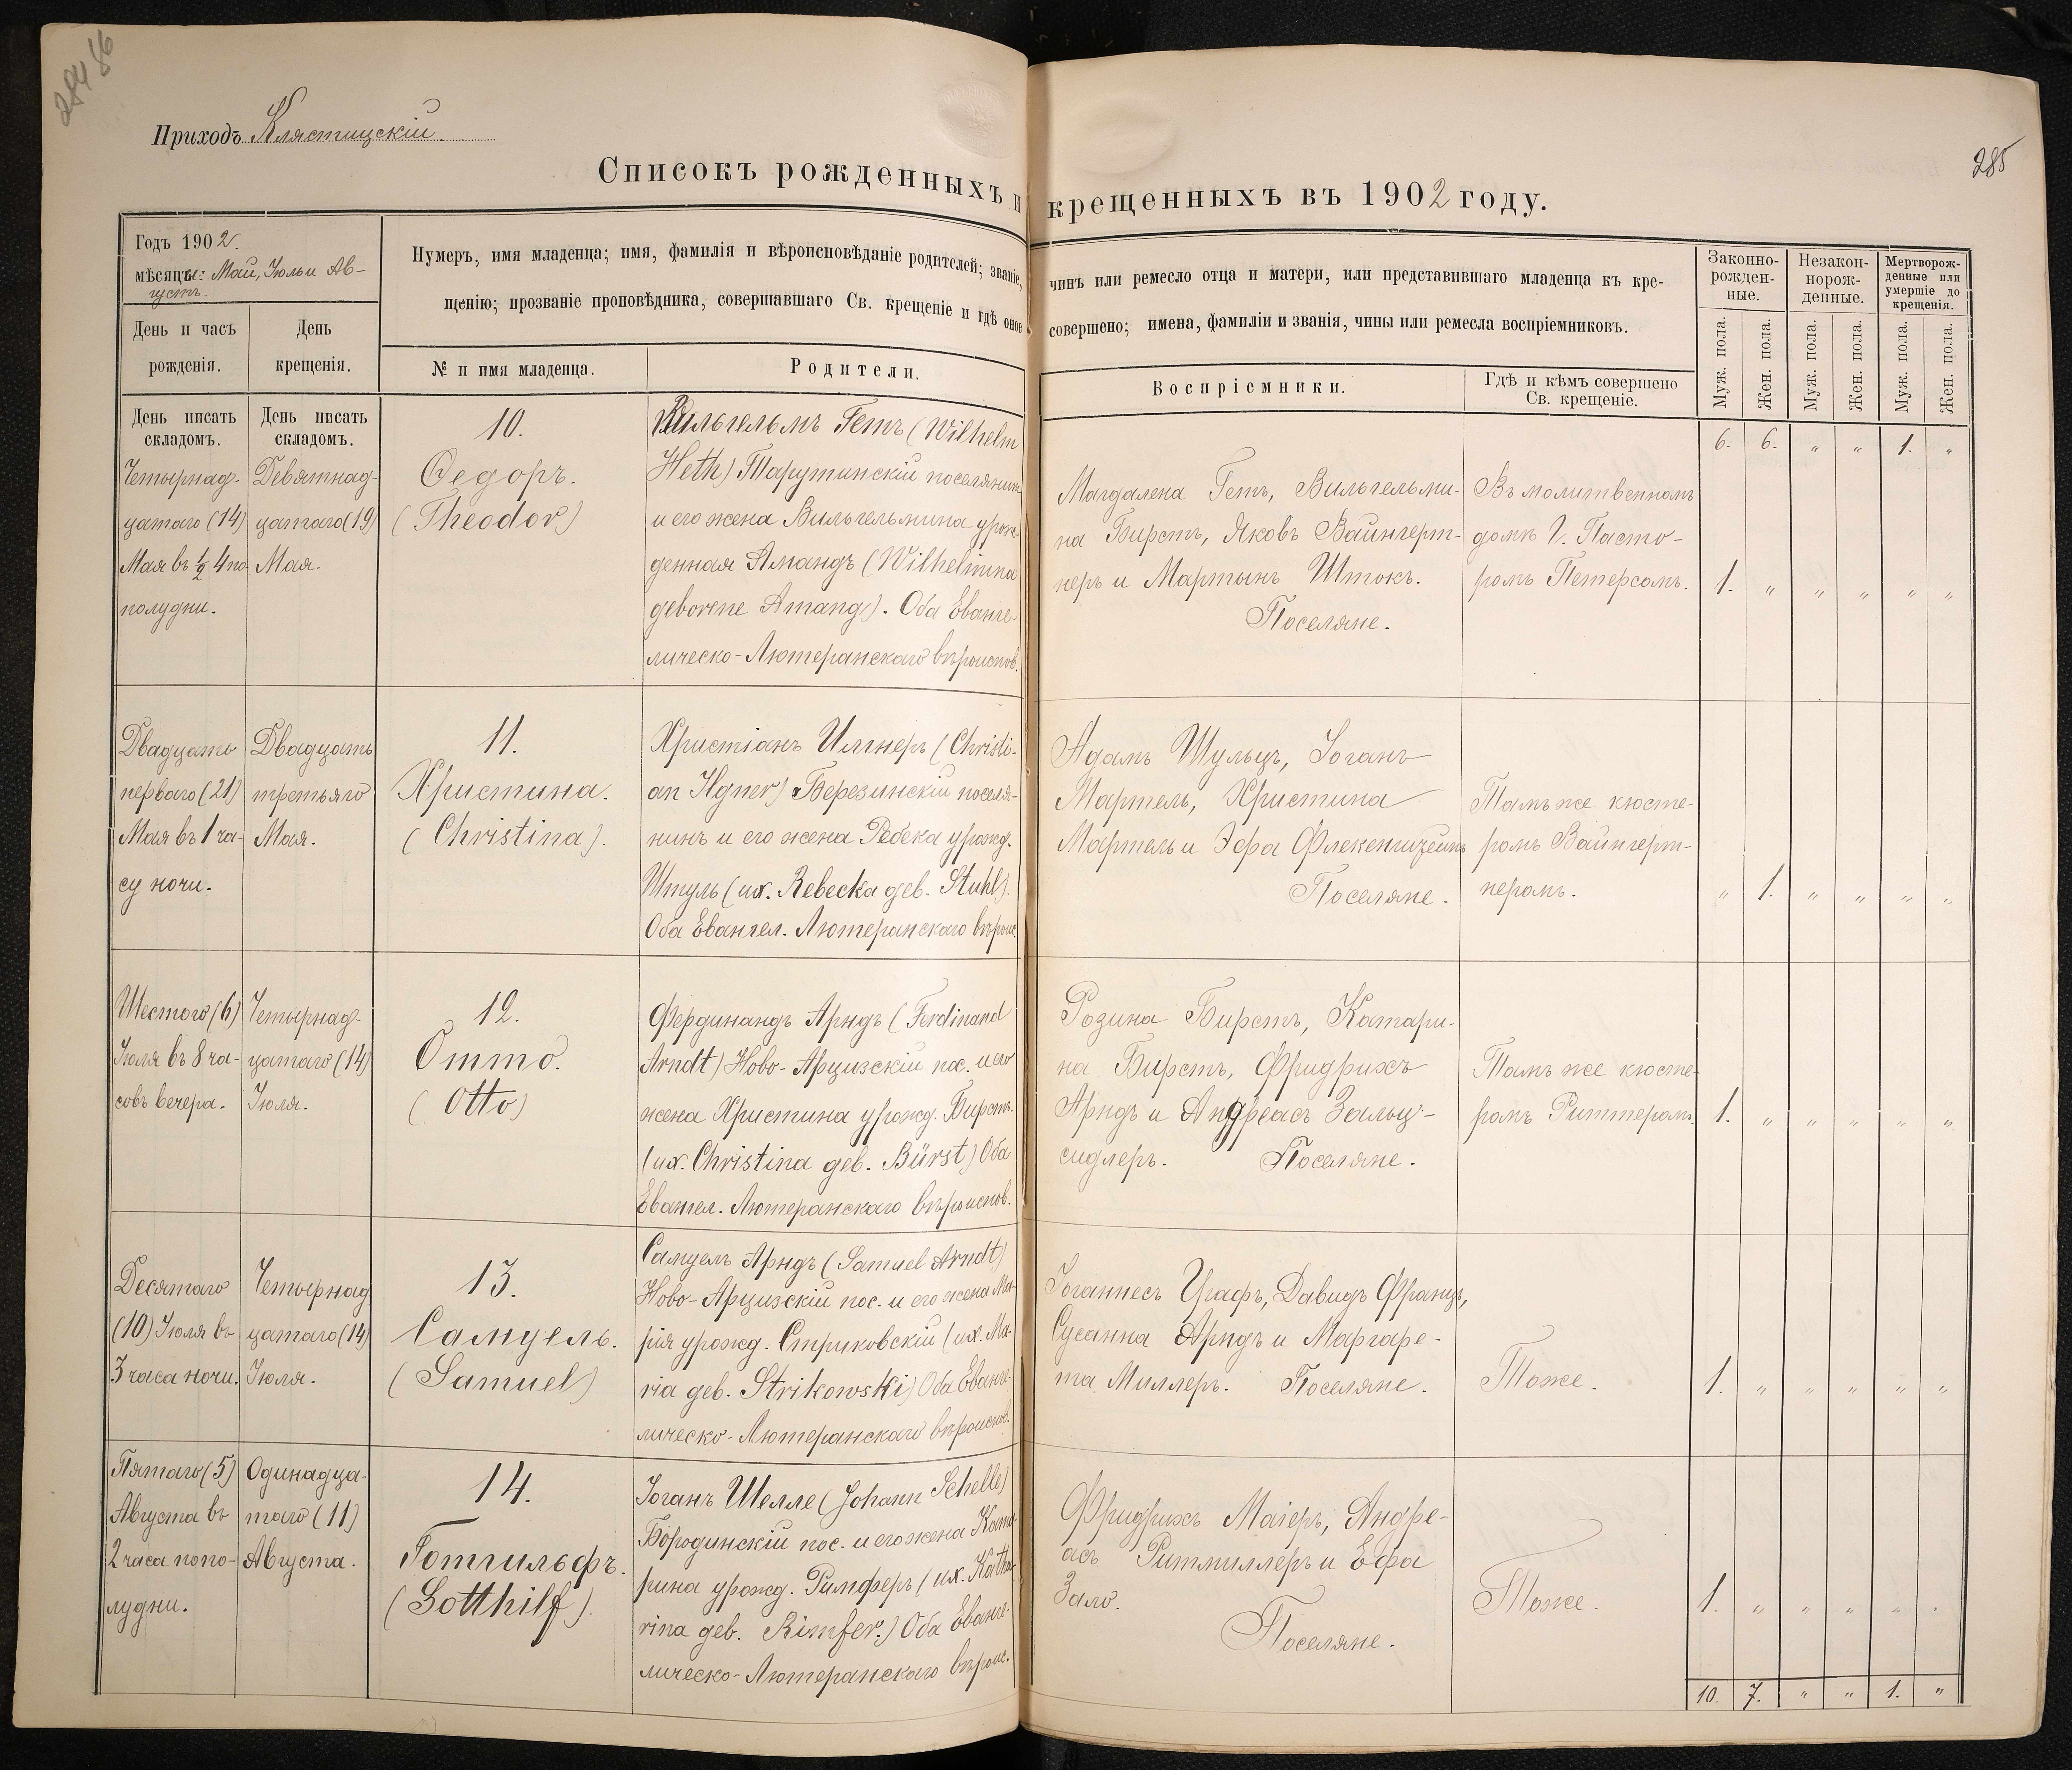 284 86
Приходъ Клястицскій
285
Списокъ рожденныхъ и крещенныхъ въ 1902 году.
Годъ 1902.
мѣсяцы: Май, Іюль и Ав-
густъ.
День и часъ
рожденія.
День
крещенія.
Нумеръ, имя младенца; имя, фамилія и вѣроисповѣданіе родителей; званіе,
щенію; прозваніе проповѣдника, совершавшаго Св. крещеніе и гдѣ оное
№ и имя младенца.
Родители.
чинъ или ремесло отца и матери, или представившаго младенца къ кре-
совершено; имена, фамиліи и званія, чины или ремесла воспріемниковъ.
Воспріемники.
Гдѣ и кѣмъ совершено
Св. крещеніе.
Законно-
рожден-
ные.
Незакон-
норож-
денные.
Мертворож-
денные или
умершіе до
крещенія.
Муж. пола.
Жен. пола.
Муж. пола.
Жен. пола.
Муж. пола.
Жен. пола.
6. 6. " " 1. "
День писать
складомъ.
Четырнад-
цатаго (14)
Мая въ ½ 4 по
полудни.
День писать
складомъ.
Девятнад-
цатаго (19)
Мая.
10.
Ѳедоръ.
(Theodor)
Вильгельмъ Гетъ (Wilhelm
Heth) Тарутинскій поселянинъ
и его жена Вильгельмина урож-
денная Амандъ (Wilhelmina
geborene Amang). Оба Еванге-
лическо-Лютеранскаго вѣроиспов.
Магдалена Гетъ, Вильгельми-
на Бирстъ, Яковъ Вайнгерт-
неръ и Мартынъ Штокъ.
Поселяне.
Въ молитвенномъ
домѣ Г. Пасто-
ромъ Петерсомъ.
1. " " " " "
Двадцать
перваго (21)
Мая въ 1 ча-
су ночи.
Двадцать
третьяго
Мая.
11.
Христина.
(Christina).
Христіанъ Илгнеръ (Christi-
an Ilgner) Березинскій поселя-
нинъ и его жена Ребека урожд.
Штуль (их. Rebecka geb. Stuhl).
Оба Евангел. Лютеранскаго вѣроис.
Адамъ Шульцъ, Іоганъ
Мартель, Христина
Мартель и Эфа Флекенштейнъ
Поселяне.
Тамъ же кюсте-
ромъ Вайнгерт-
неромъ.
" 1. " " " "
Шестого (6)
Іюля въ 8 ча-
совъ вечера.
Четырнад-
цатаго (14)
Іюля.
12.
Отто.
(Otto)
Фердинандъ Арндъ (Ferdinand
Arndt) Ново-Арцизскій пос. и его
жена Христина урожд. Бирстъ.
(их. Christina geb. Bürst) Оба
Евангел. Лютеранскаго вѣроиспов.
Розина Бирстъ, Катари-
на Бирстъ, Фридрихъ
Арндъ и Андреасъ Зальц-
сидлеръ. Поселяне.
Тамъ же кюсте-
ромъ Риттеромъ.
1. " " " " "
Десятаго
(10) Іюля въ
3 часа ночи.
Четырнад
цатаго (14)
Іюля.
13.
Самуель.
(Samuel)
Самуелъ Арндъ (Samuel Arndt)
Ново-Арцизскій пос. и его жена Ма-
рія урожд. Стриковскій (их. Ma-
ria geb. Strikowski) Оба Еванге-
лическо-Лютеранскаго вѣроиспов.
Іоганнесъ Графъ, Давидъ Францъ,
Сусанна Арндъ и Маргаре-
та Миллеръ. Поселяне.
Тоже.
1. " " " " "
Пятаго (5)
Августа въ
2 часа попо-
лудни.
Одинадца-
таго (11)
Августа.
14.
Готгильфъ.
(Gotthilf).
Іоганъ Шелле (Johann Schelle)
Бородинскій пос. и его жена Ката-
рина урожд. Римферъ (их. Katha-
rina geb. Rimfer.) Оба Еванге-
лическо-Лютеранскаго вѣроис.
Фридрихъ Маіеръ, Андре-
асъ Ритмиллеръ и Ефа
Зало.
Поселяне.
Тоже.
1. " " " " "
10. 7. " " 1. "